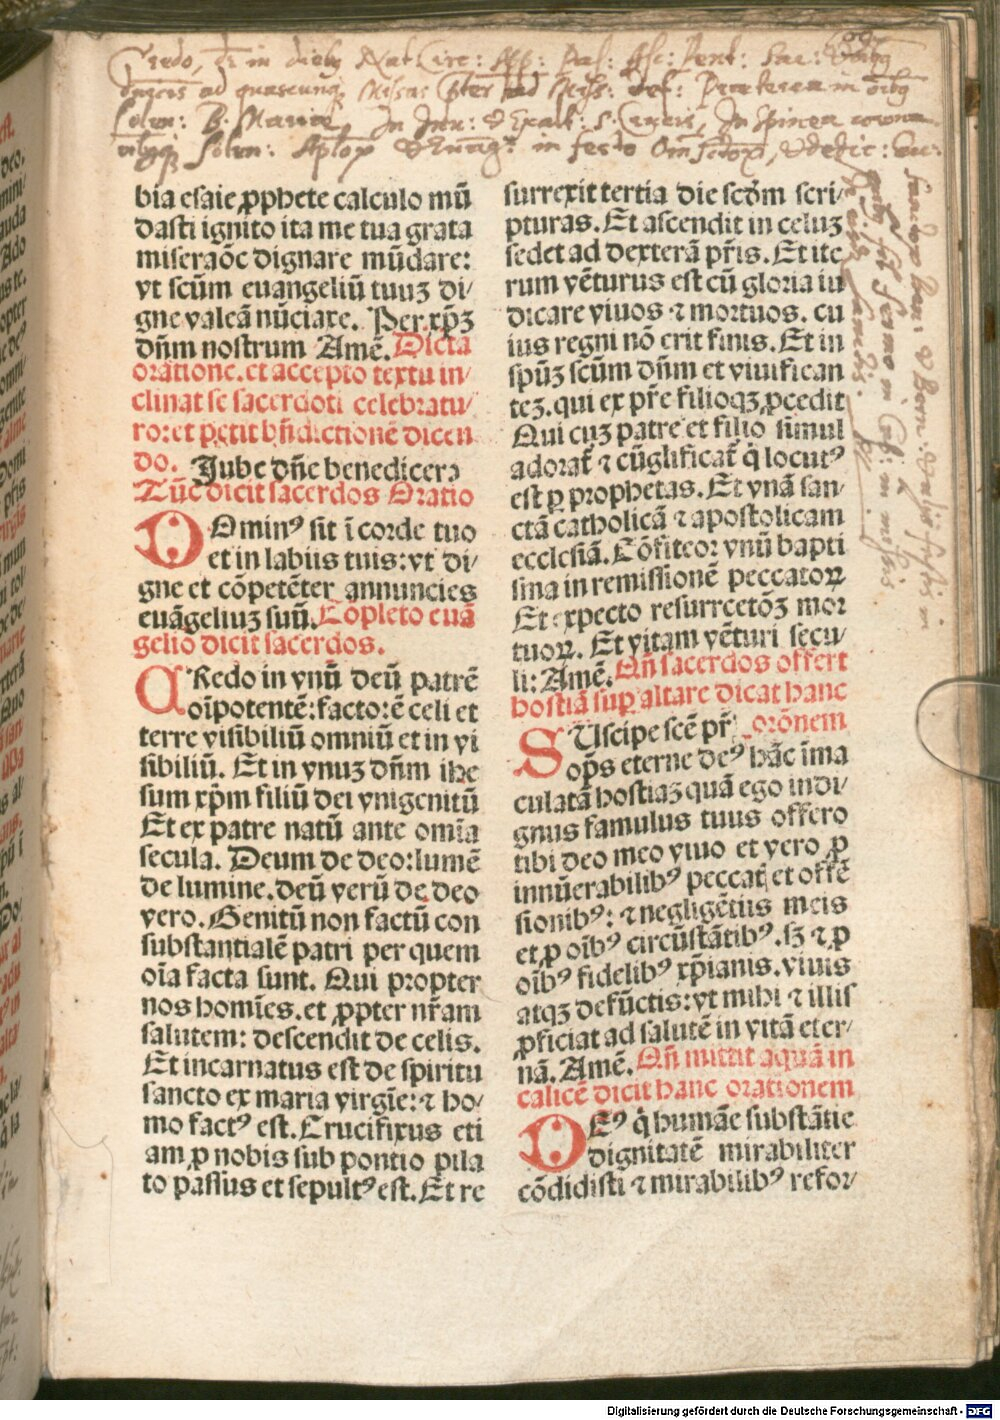 Credo, di: in diebus Nat: Circ: App: Pas: Asc: Pent: Sac:
ad quascunque Missas
Solen: B: Mariae, In Inu: & Exalt: S: Crucis, In Spinea corona
Solen: in festo & dedic:
bia esaie ꝓphete calculo mū
dasti ignito ita me tua grata
miseraōe dignare mūdare:
vt scūm euangeliū tuuꝫ di/
gne valeā nūciare. Per.xp̄ꝫ
dn̄m nostrum Amē. Dicta
oratione.et accepto textu in/
clinat se sacerdoti celebratu/
ro:et petit bn̄dictionē dicen
do. Jube dn̄e benedicere
Tūc dicit sacerdos Oratio
DOminꝰ sit ī corde tuo
et in labiis tuis:vt di/
gne et cōpetēter annuncies
euāgeliuꝫ suū. Cōpleto euā
gelio dicit sacerdos.
CRedo in vnū deū patrē
oīpotentē:factorē celi et
terre visibiliū omniū et in vi
sibiliū. Et in vnuꝫ dn̄m ihe
sum xp̄m filiū dei vnigenitū
Et ex patre natū ante omīa
secula. Deum de deo:lumē
de lumine.deū verū de deo
vero. Genitū non factū con
substantialē patri per quem
oīa facta sunt. Qui propter
nos homīes.et ꝓpter nr̄am
salutem: descendit de celis.
Et incarnatus est de spiritu
sancto ex maria virgīe:⁊ ho/
mo factꝰ est. Crucifixus eti
am ꝓ nobis sub pontio pila
to passus et sepultꝰ est. Et re
surrexit tertia die scd̄m scri/
pturas. Et ascendit in celuꝫ
sedet ad dexterā pr̄is. Et ite
rum vēturus est cū gloria iu
dicare viuos ⁊ mortuos. cu
ius regni nō erit finis. Et in
spūꝫ scūm dn̄m et viuifican
teꝫ.qui ex pr̄e filioqꝫ ꝓcedit
Qui cuꝫ patre et filio simul
adorat̄ ⁊ cūglificat̄ q̇ locutꝰ
est ꝑ prophetas. Et vnā san/
ctā catholicā ⁊ apostolicam
ecclesiā. Cōfiteor vnū bapti
sma in remissionē peccatoꝝ
Et expecto resurrectōꝫ mor
tuoꝝ. Et vitam vēturi secu/
li: Amē. Qn̄ sacerdos offert
hostiā suꝑ altare dicat hanc
orōnem
SUscipe scē pr̄
op̄s eterne deꝰ hāc īma
culatā hostiaꝫ quā ego indi/
gnus famulus tuus offero
tibi deo meo viuo et vero ꝓ
innūerabilibꝰ peccat̄ et offē
sionibꝰ: ⁊ negligētiis meis
et ꝓ oībꝰ circūstātibꝰ.sꝫ ⁊ ꝓ
oībꝰ fidelibꝰ xp̄ianis.viuis
atqꝫ defūctis:vt mihi ⁊ illis
ꝓficiat ad salutē in vitā eter/
nā. Amē. Qn̄ mittit aquā in
calicē dicit hanc orationem
DEꝰ q̇ humāe substātie
dignitatē mirabiliter
cōdidisti ⁊ mirabilibꝰ refor/
Digitalisierung gefördert durch die Deutsche Forschungsgemeinschaft - DFG